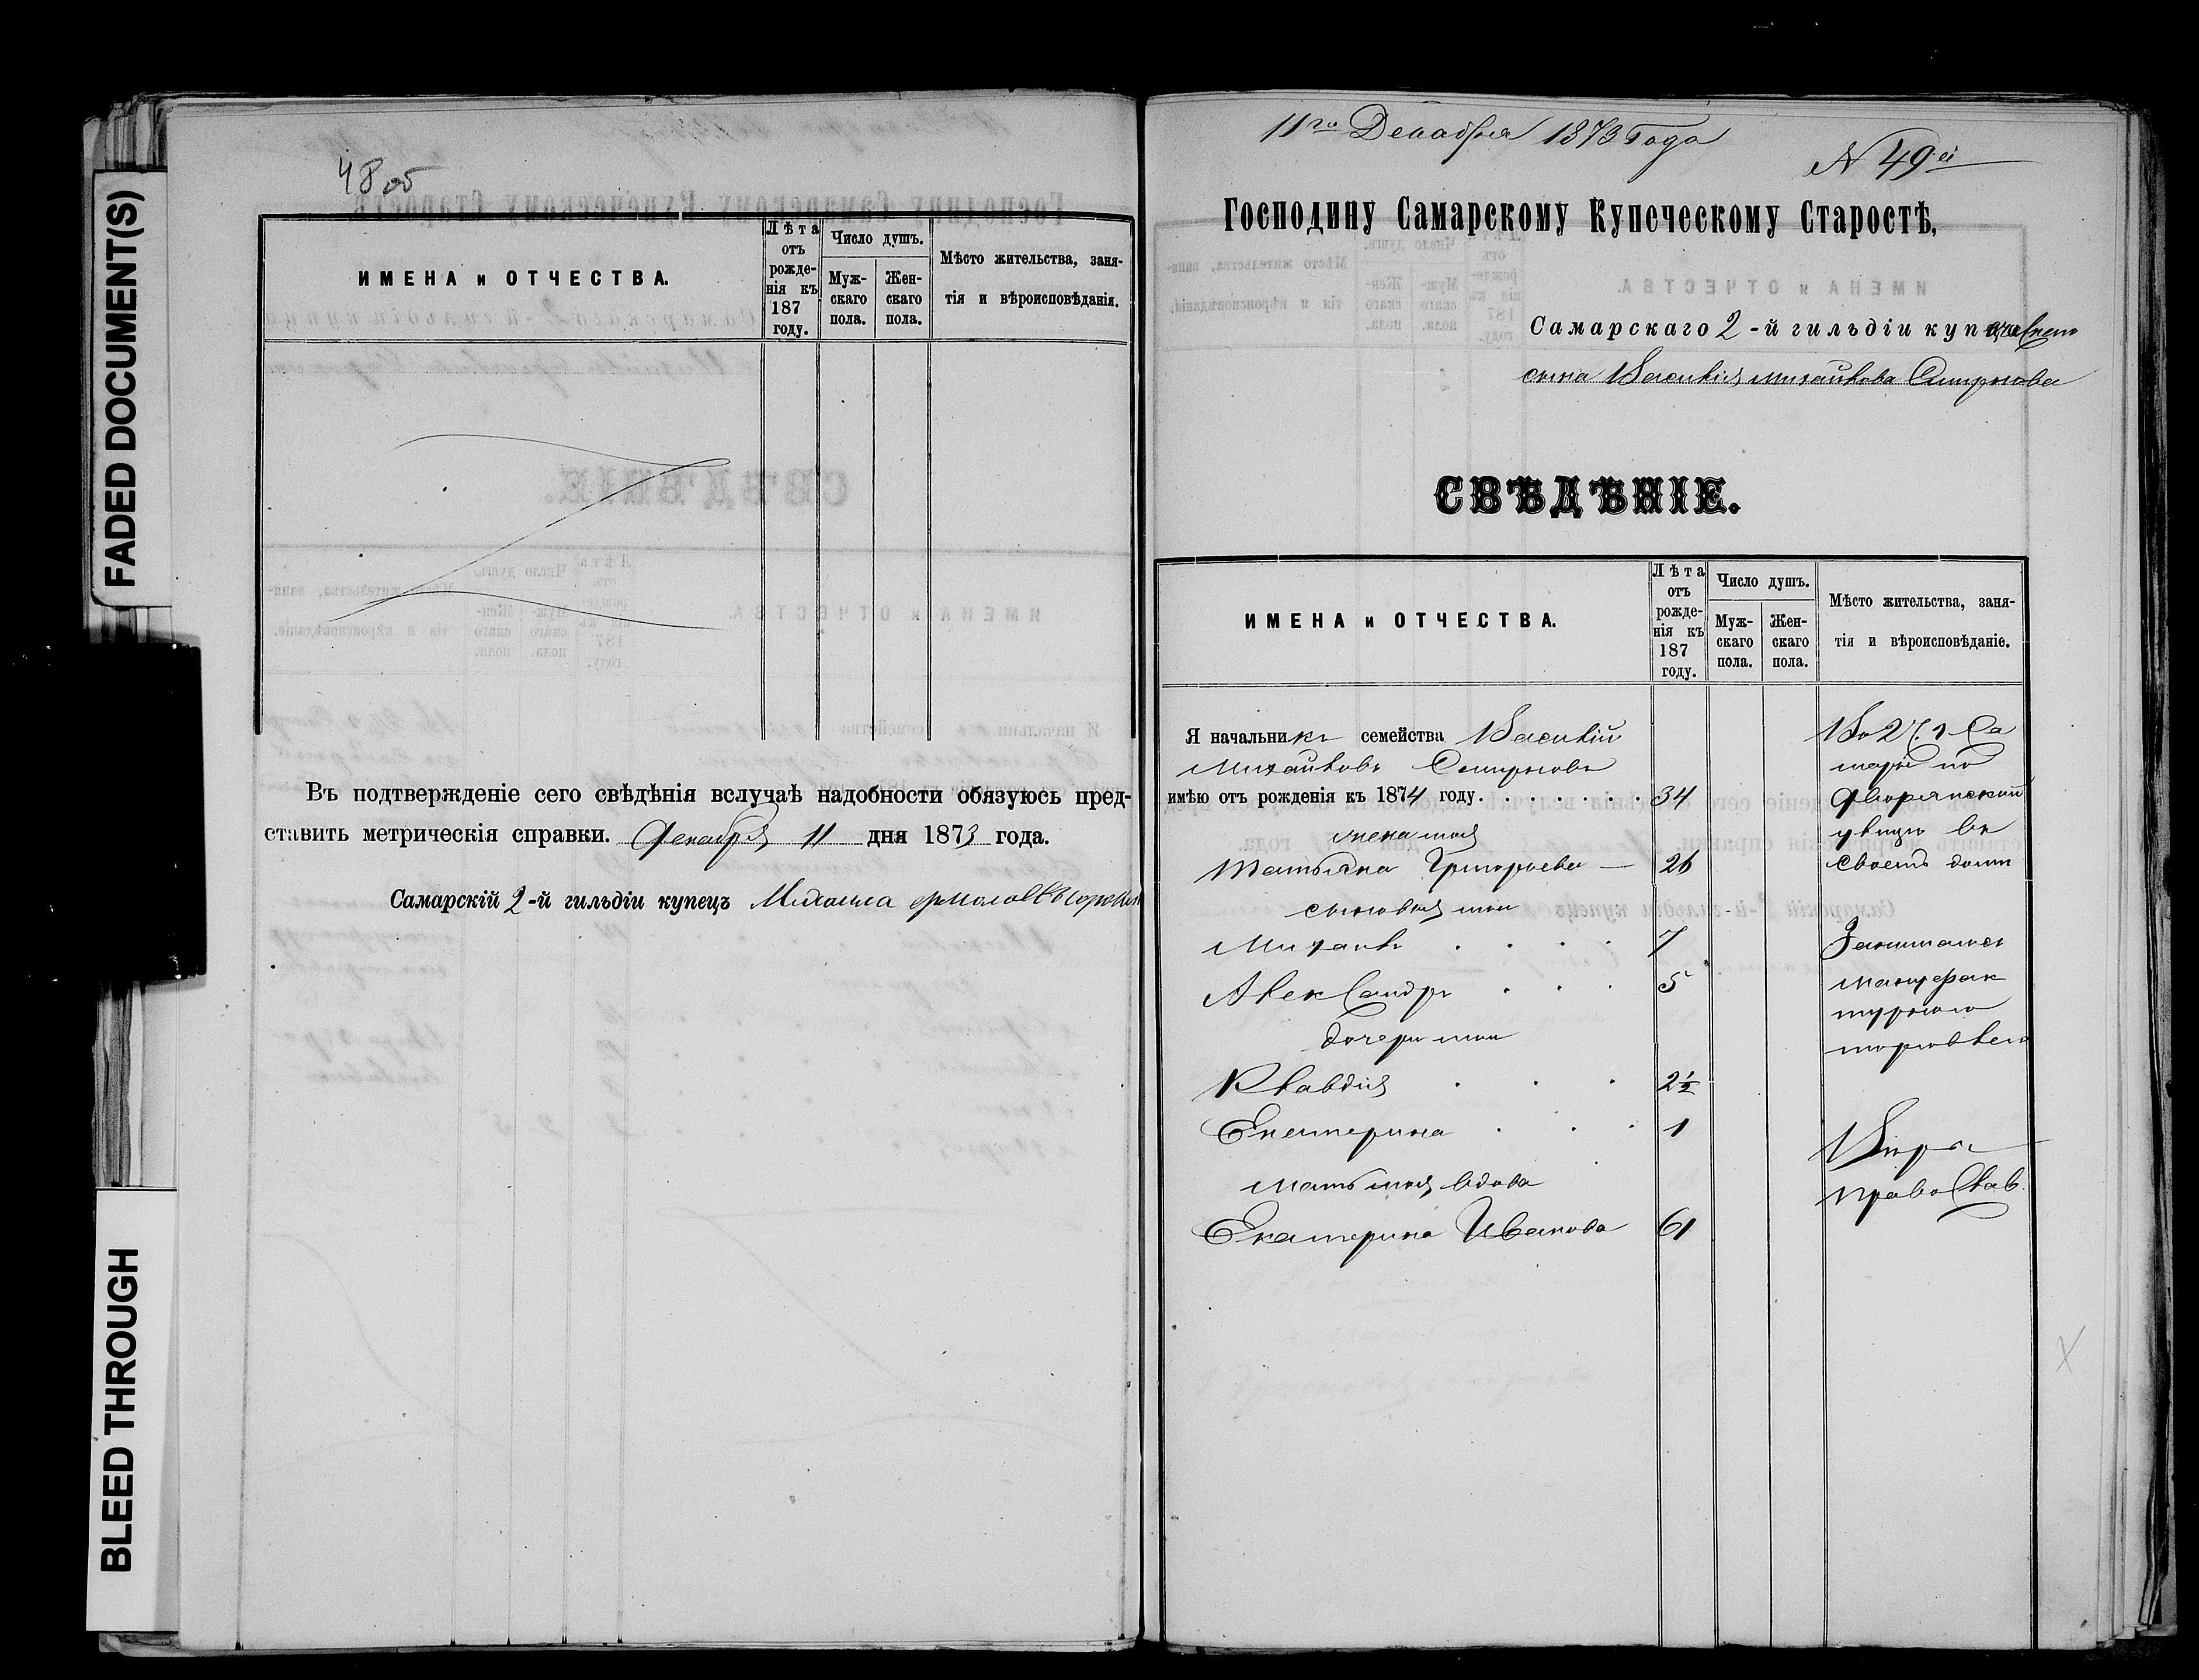 FADED DOCUMENT(S)
BLEED THROUGH
48 об
ИМЕНА и ОТЧЕСТВА.
Лѣта отъ рожденія къ 187 году.
Число душъ.
Мужскаго пола.
Женскаго пола.
Мѣсто жительства, занятія и вѣроисповѣданія.
Въ подтвержденіе сего свѣдѣнія вслучаѣ надобности обязуюсь пред-
ставить метрическія справки. Декабря 11 дня 1873 года.
Самарскій 2-й гильдіи купецъ Михаила
11го Декабря 1873 Года
N 49й
Господину Самарскому Купеческому Старостѣ,
Самарскаго 2-й гильдіи купеческаго
сына Василія Михайлова Смирнова
СВѢДѢНІЕ.
ИМЕНА и ОТЧЕСТВА.
Лѣта отъ рожденія къ 187 году.
Число душъ.
Мужскаго пола.
Женскаго пола.
Мѣсто жительства, занятія и вѣроисповѣданіе.
Я начальникъ семейства Василій
Михайловъ Смирновъ
имѣю отъ рожденія къ 1874 году. . . . . . . 34
жена моя
Татьяна Григорьева — 26
сыновья мои
Михаилъ . . . . 7
Александръ . . . 5
дочери мои
Клавдія . . . 2½
Екатерина . . . 1
мать моя вдова
Екатерина Иванова 61
Въ г. Са
марѣ по
Дворянской
улицѣ въ
своемъ доми
Занимаюсь
мануфак
турною
торговлею
Вѣры
Православ.